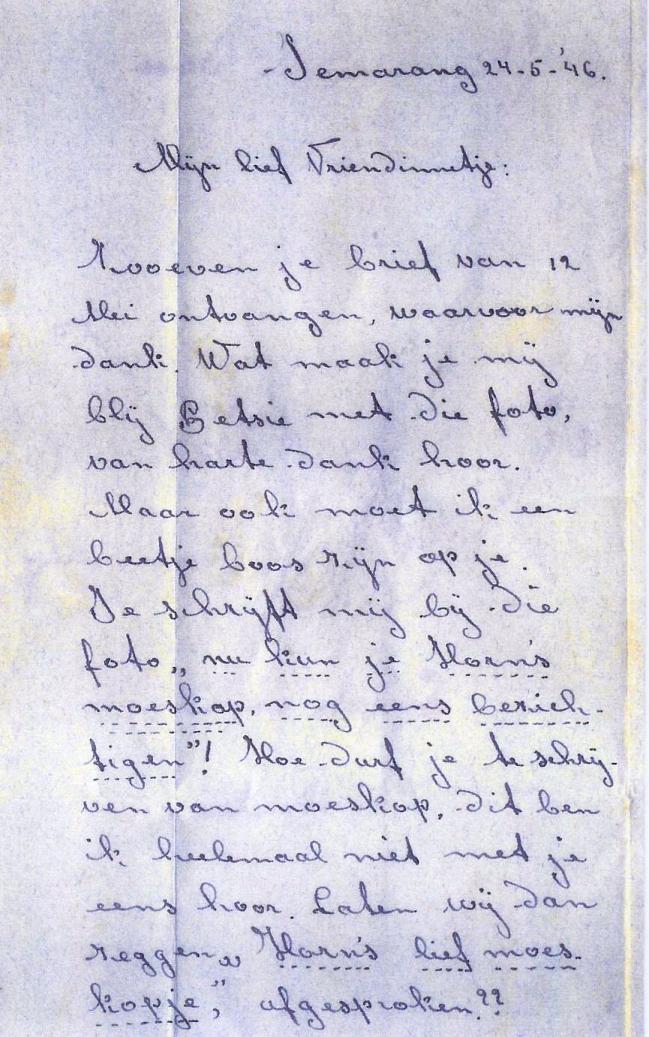 Semarang 24-5-'46.
Mijn lief Vriendinnetje:
Zooeven je brief van 12
Mei ontvangen, waarvoor mijn
dank. Wat maak je mij
blij Betsie met die foto,
van harte dank hoor.
Maar ook moet ik een
beetje boos zijn op je.
Je schrijft mij bij die
foto „nu kun je Horn's
moeskop, nog eens bezich-
tigen”! Hoe durf je te schrij-
ven van moeskop, dit ben
ik heelemaal niet met je
eens hoor. Laten wij dan
zeggen „Horn's lief moes-
kopje”, afgesproken??